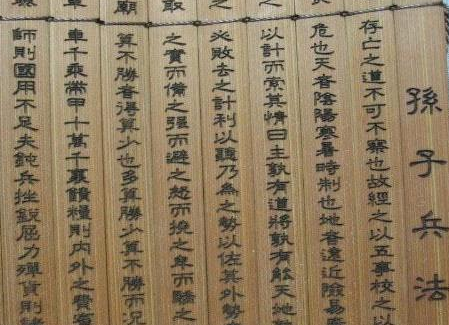 孫子兵法
存亡之道不可不察也故經之以五事校之以
危也天者陰陽寒暑時制也地者遠近險易
以計而索其情曰主孰有道將孰有能天地
必敗去之計利以聽乃為之勢以佐其外勢
取
之實而備之强而避之怒而撓之卑而驕之
廟
算不勝者得算少也多算勝少算不勝而況
車千乘帶甲十萬千裏饋糧則內外之費
師則國用不足夫鈍兵挫銳屈力殫貨則